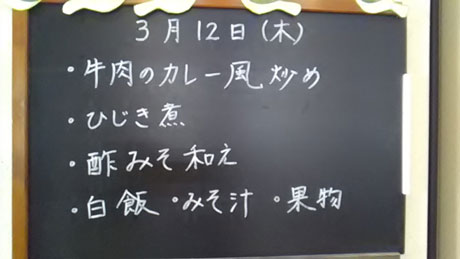 3月12日(木)
・牛肉のカレー風炒め
・ひじき煮
・酢みそ和え
・白飯 ・みそ汁 ・果物